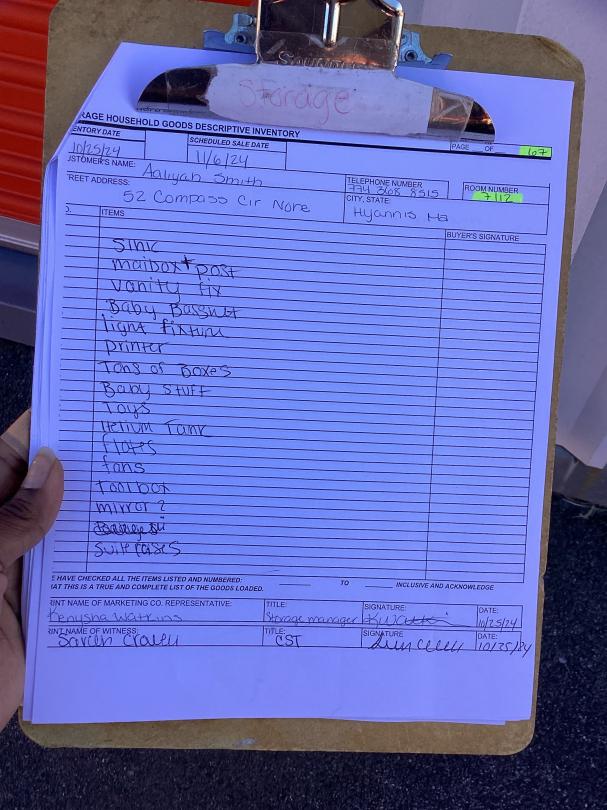 Storage
RAGE HOUSEHOLD GOODS DESCRIPTIVE INVENTORY
PAGE OF 67
ENTORY DATE SCHEDULED SALE DATE
10/25/24 11/6/24
USTOMER'S NAME: Aaliyah Smith TELEPHONE NUMBER ROOM NUMBER
774 368 8515 7112
REET ADDRESS: CITY, STATE:
52 Compass Cir Nore Hyannis Ma
O. ITEMS BUYER'S SIGNATURE
Sink
maibox + post
vanity fix
Baby Bassnet
light fixture
printer
Tons of Boxes
Baby Stuff
Toys
Helium Tank
flotes
fans
toolbox
mirror 2
suitecases
E HAVE CHECKED ALL THE ITEMS LISTED AND NUMBERED: TO INCLUSIVE AND ACKNOWLEDGE
AT THIS IS A TRUE AND COMPLETE LIST OF THE GOODS LOADED.
RINT NAME OF MARKETING CO. REPRESENTATIVE: TITLE: SIGNATURE: DATE:
Kenysha Watkins Storage manager K Watkins 10/25/24
RINT NAME OF WITNESS: TITLE: SIGNATURE DATE:
CST 10/25/24